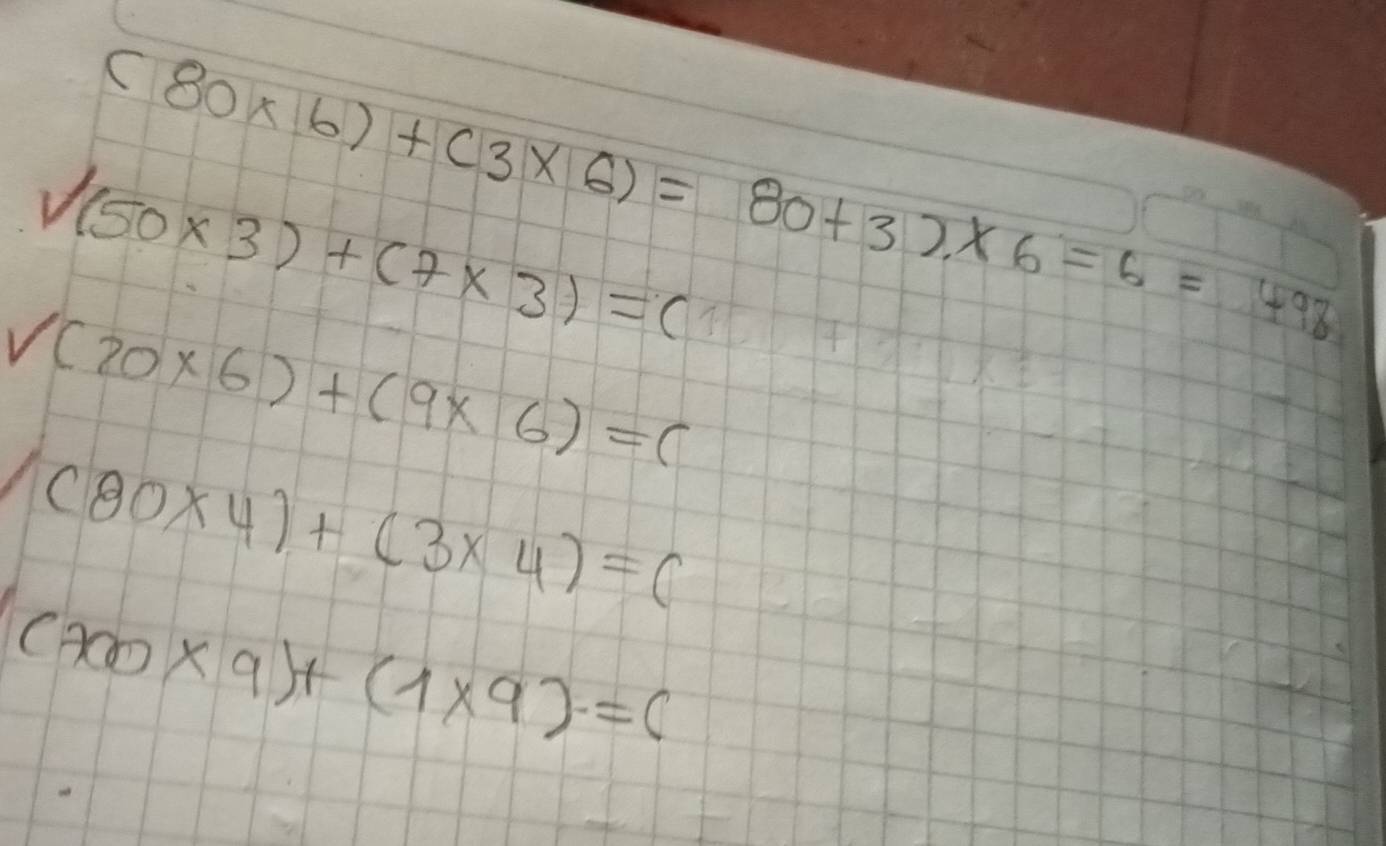 (80×6)+(3×6)= 80+3)×6=6= 498
(50×3)+(7×3)=(
(20×6)+(9×6)=(
(80×4)+(3×4)=(
(700×9)+(1×9)=(